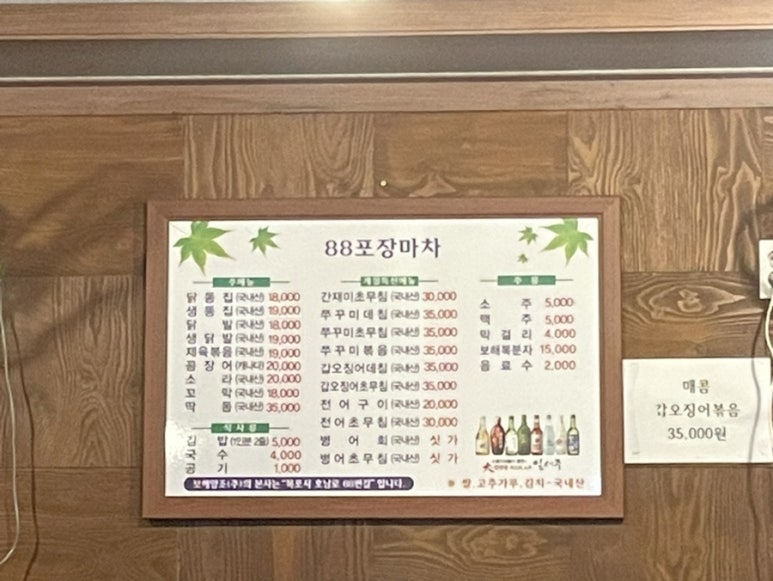 88포장마차
주메뉴
닭똥집(국내산) 18,000
생똥집(국내산) 19,000
닭발(국내산) 18,000
생닭발(국내산) 19,000
제육볶음(국내산) 19,000
꼼장어(캐나다) 20,000
소라(국내산) 20,000
꼬막(국내산) 18,000
딱돔(국내산) 35,000
식사류
김밥(1인분 2줄) 5,000
국수 4,000
공기 1,000
계절특선메뉴
간재미초무침(국내산) 30,000
쭈꾸미데침(국내산) 35,000
쭈꾸미초무침(국내산) 35,000
쭈꾸미볶음(국내산) 35,000
갑오징어데침(국내산) 35,000
갑오징어초무침(국내산) 35,000
전어구이(국내산) 20,000
전어초무침(국내산) 30,000
병어회(국내산) 싯가
병어초무침(국내산) 싯가
주류
소주 5,000
맥주 5,000
막걸리 4,000
보해복분자 15,000
음료수 2,000
잎새주
보해양조(주)의 본사는 "목포시 호남로 68번길" 입니다.
※ 쌀,고추가루,김치-국내산
매콤
갑오징어볶음
35,000원